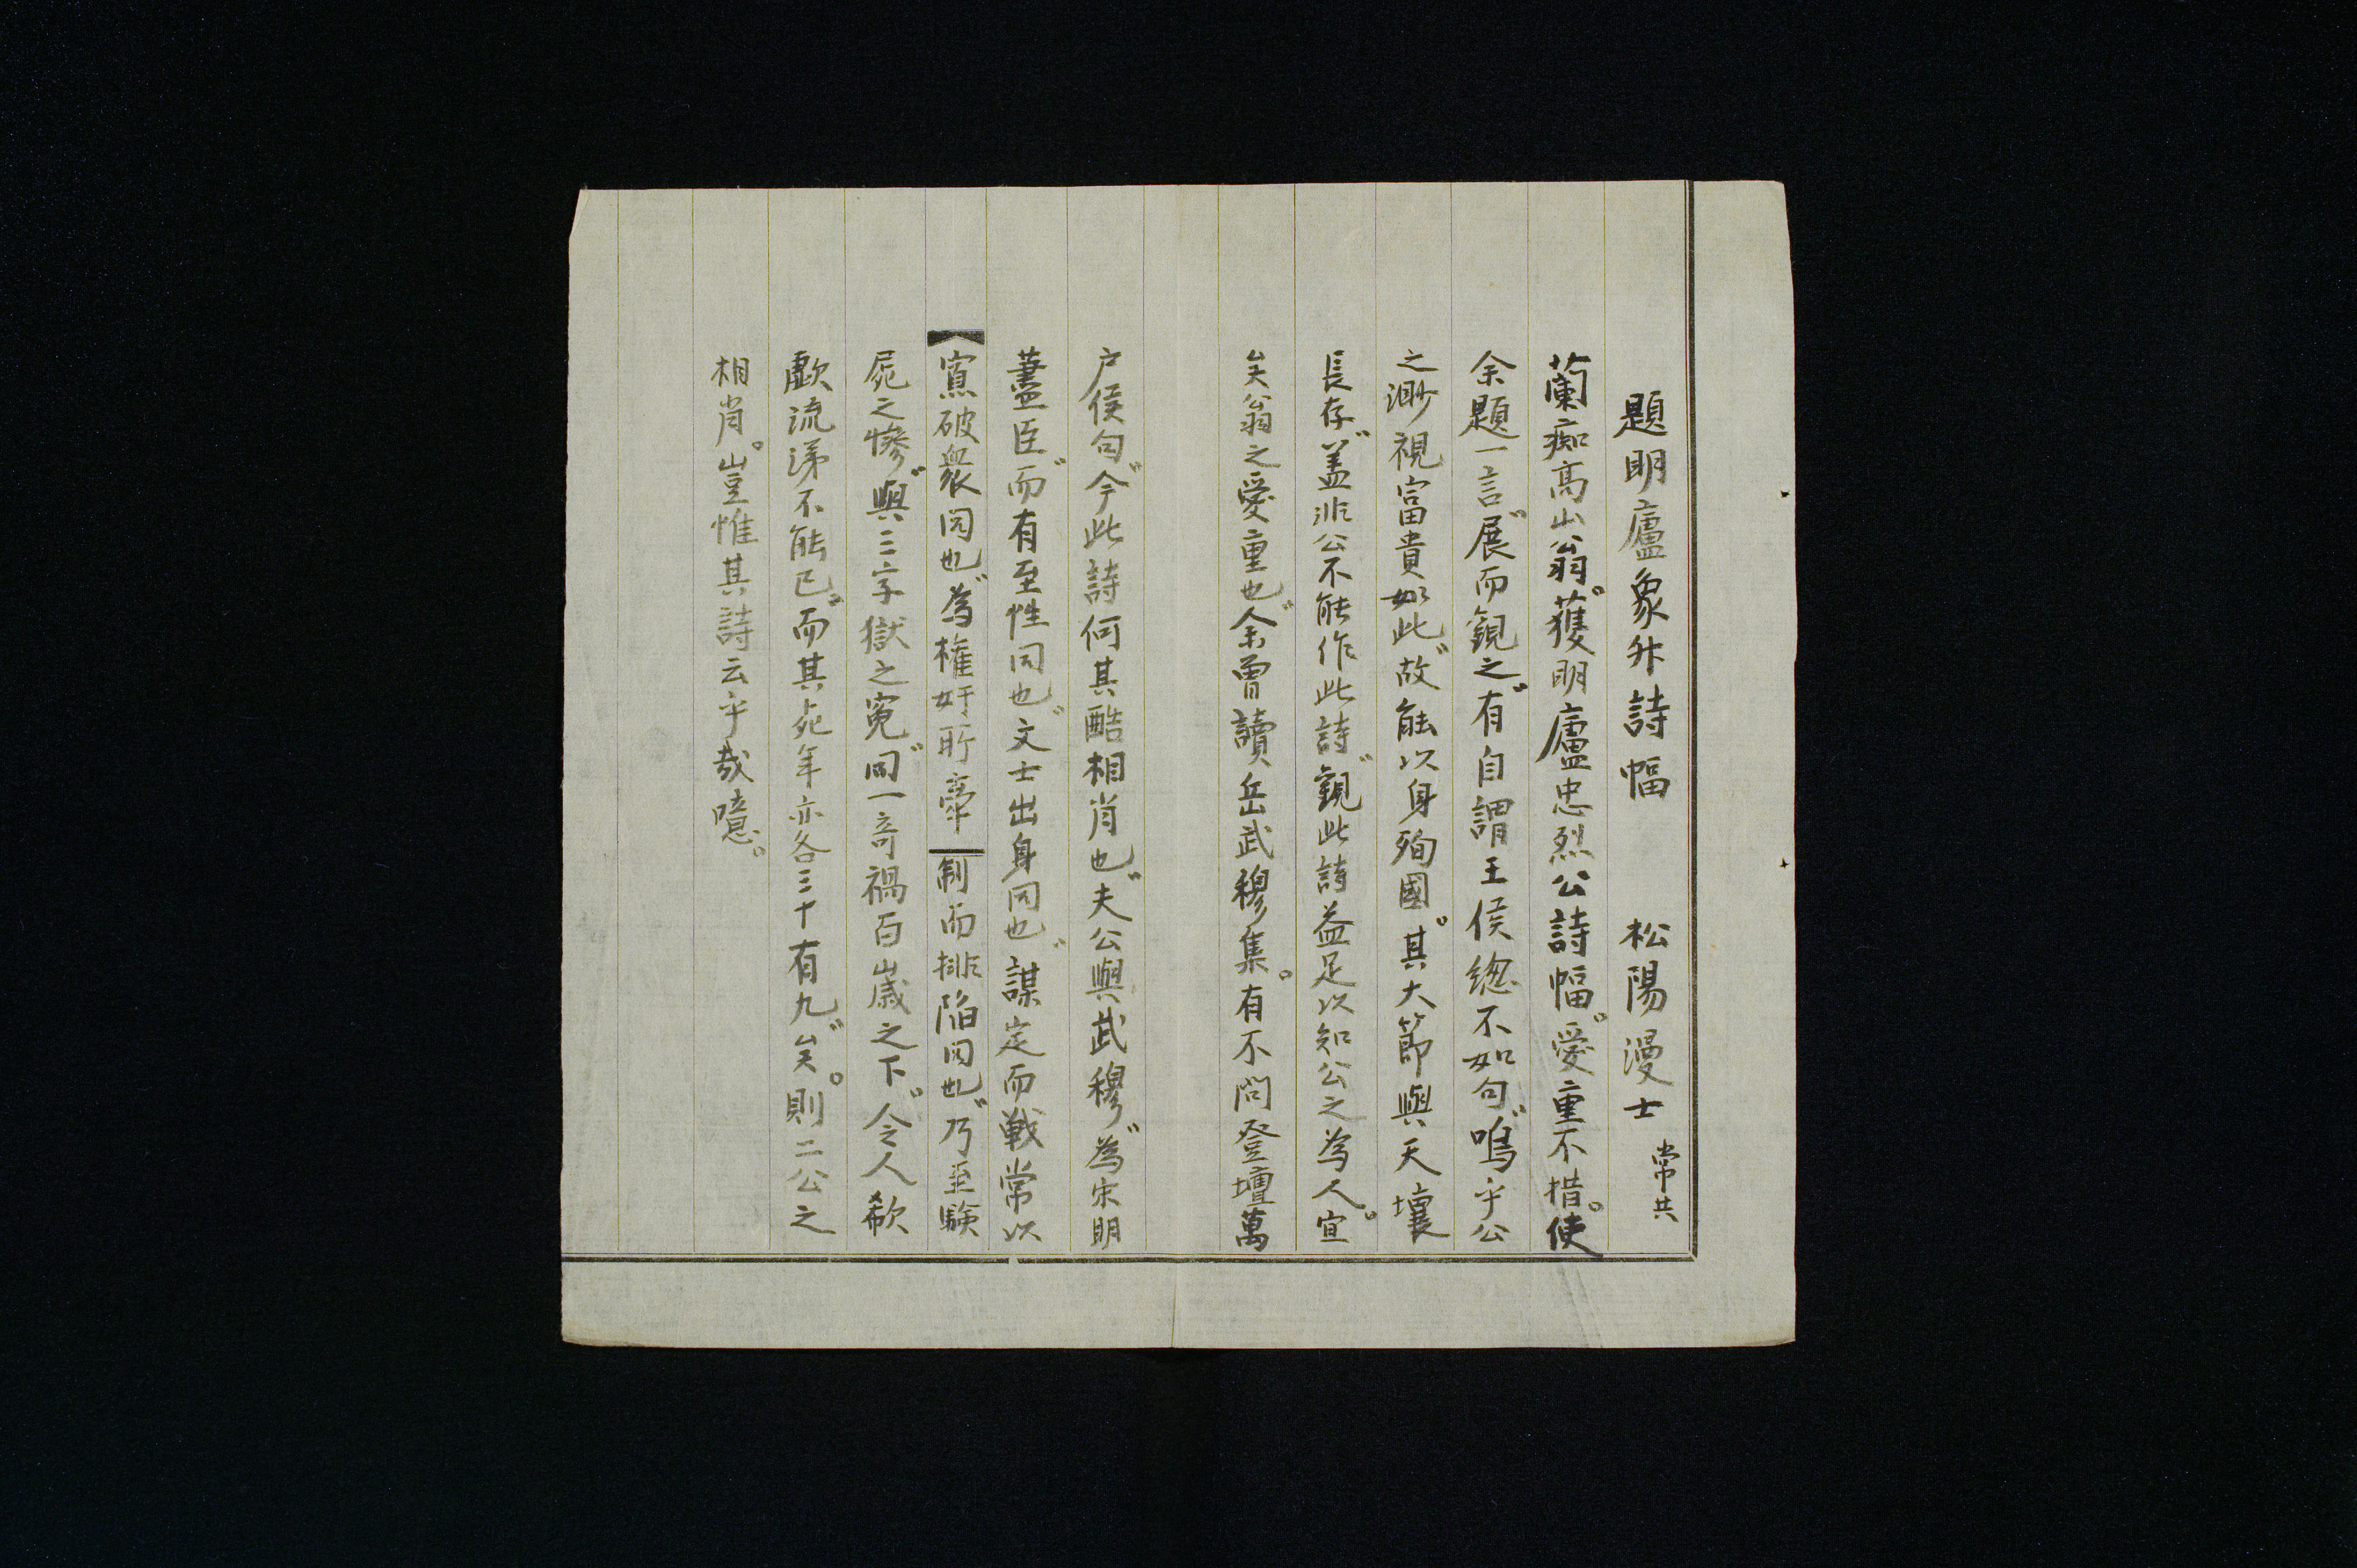 題明盧象舛詩幅　松陽漫士 常共
蘭痴髙山翁。獲明盧忠烈公詩幅。愛重不措。使
余題一言。展而觀之。有自謂王侯總不如句。嗚乎公
之渺視富貴如此。故能以身殉國。其大節與天壤
長存。盖非公不能作此詩。觀此詩益足以知公之為人。宜
矣翁之愛重也。余曽讀岳武穆集。有不問登壇萬
户侯句。今此詩何其酷相肖也。夫公與武穆。為宋明
藎臣。而有至性同也。文士出身同也。謀定而戦常以
寡破衆同也。為権奸所牽制而排陥同也。乃至験
屍之惨。與三字獄之寃。同一奇禍百歲之下。令人欷
歔流涕不能已。而其死年亦各三十有九。矣。則二公之
相肖。豈惟其詩云乎哉噫。